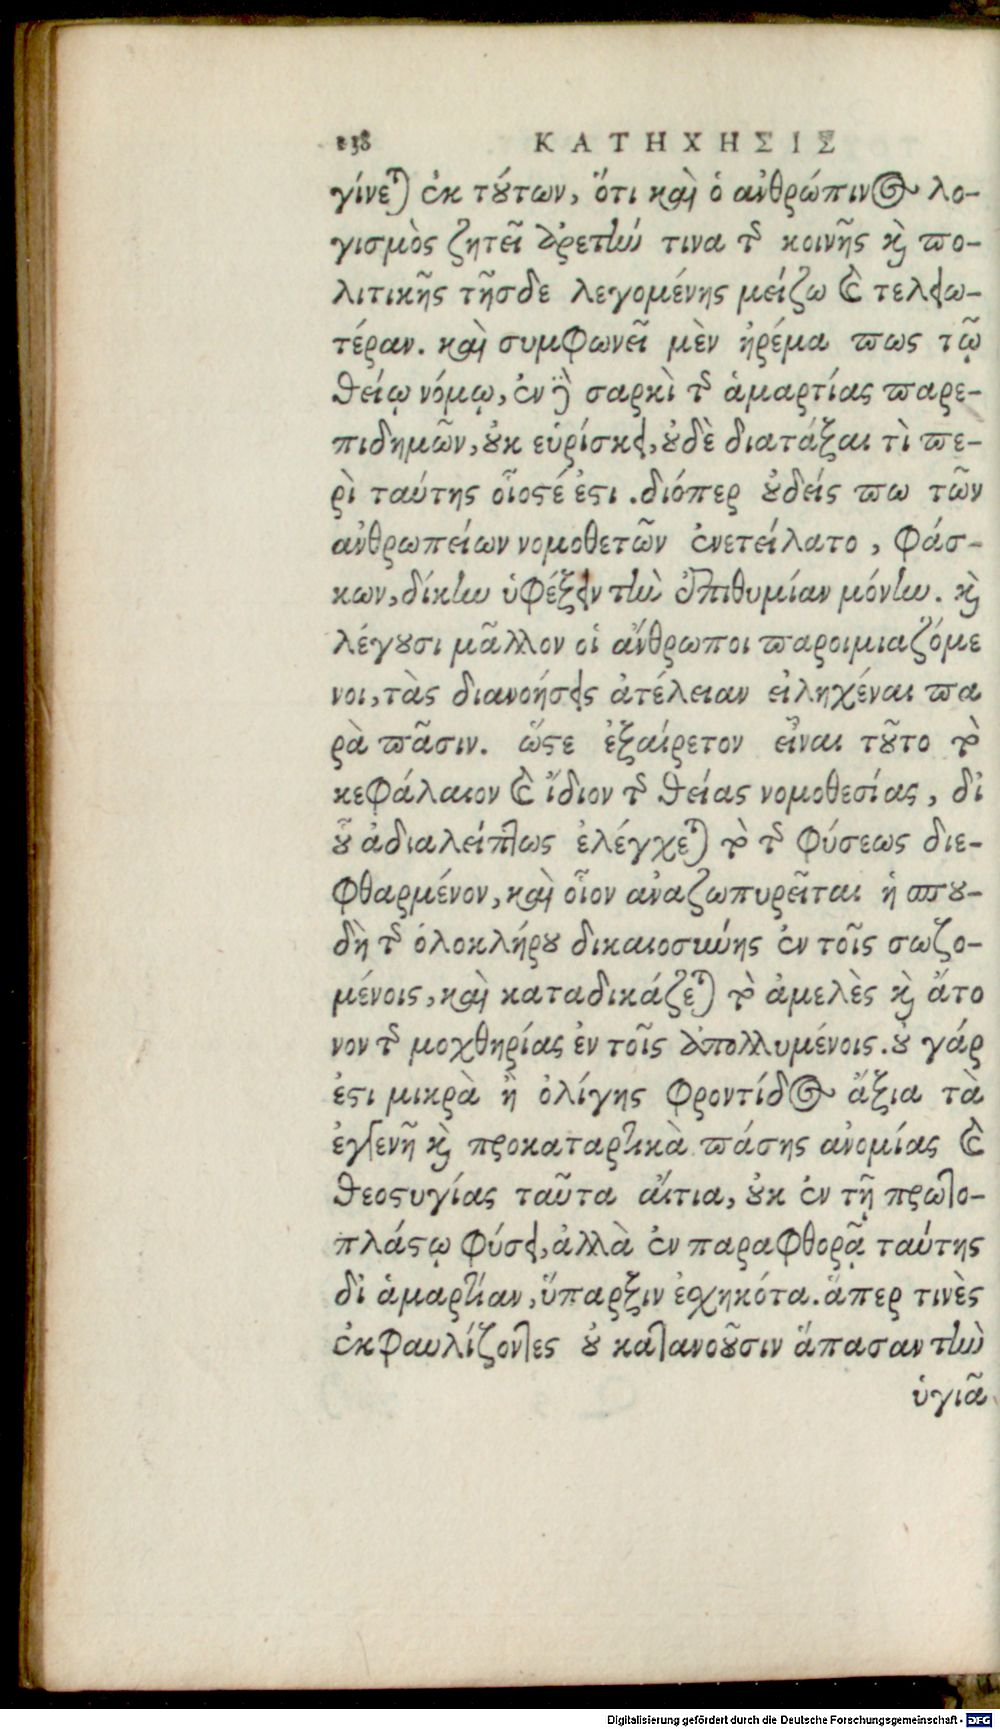 138 ΚΑΤΗΧΗΣΙΣ
γίνεται ἐκ τούτων, ὅτι καὶ ὁ ἀνθρώπινος λο-
γισμὸς ζητεῖ ἀρετήν τινα τῆς κοινῆς καὶ πο-
λιτικῆς τῆσδε λεγομένης μείζω καὶ τελειω-
τέραν. καὶ συμφωνεῖ μὲν ἠρέμα πως τῷ
θείῳ νόμῳ, ἐν δὲ σαρκὶ τῆς ἁμαρτίας παρε-
πιδημῶν, οὐκ εὑρίσκει, οὐδὲ διατάξαι τὶ πε-
ρὶ ταύτης οἷοςτέ ἐστι. διόπερ οὐδείς πω τῶν
ἀνθρωπείων νομοθετῶν ἐνετείλατο, φάσ-
κων, δίκην ὑφέξειν τὴν ἐπιθυμίαν μόνην. καὶ
λέγουσι μᾶλλον οἱ ἄνθρωποι παροιμιαζόμε
νοι, τὰς διανοήσεις ἀτέλειαν εἰληχέναι πα
ρὰ πᾶσιν. ὥστε ἐξαίρετον εἶναι τοῦτο τὸ
κεφάλαιον καὶ ἴδιον τῆς θείας νομοθεσίας, δι
οὗ ἀδιαλείπτως ἐλέγχεται τὸ τῆς φύσεως διε-
φθαρμένον, καὶ οἷον ἀναζωπυρεῖται ἡ σπου-
δὴ τῆς ὁλοκλήρου δικαιοσύνης ἐν τοῖς σωζο-
μένοις, καὶ καταδικάζεται τὸ ἀμελὲς καὶ ἄτο
νον τῆς μοχθηρίας ἐν τοῖς ἀπολλυμένοις. οὐ γάρ
ἐστι μικρὰ ἢ ὀλίγης φροντίδος ἄξια τὰ
ἐγγενῆ καὶ προκαταρτικὰ πάσης ἀνομίας καὶ
θεοστυγίας ταῦτα αἴτια, οὐκ ἐν τῇ πρωτο-
πλάστῳ φύσει, ἀλλὰ ἐν παραφθορᾷ ταύτης
δι ἁμαρτίαν, ὕπαρξιν ἐσχηκότα. ἅπερ τινὲς
ἐκφαυλίζοντες οὐ κατανοοῦσιν ἅπασαν τὴν
ὑγιᾶ
Digitalisierung gefördert durch die Deutsche Forschungsgemeinschaft - DFG